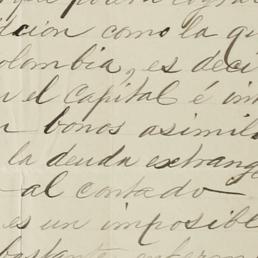 dicion como la qu
olombia, es deci
n el Capital é in
n bonos asimil
la deuda extrang
al contado
es un imposible
bastante